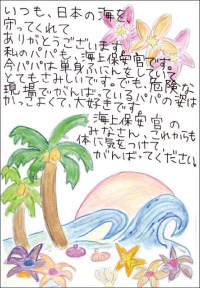 いつも、日本の海を、
守ってくれて
ありがとうございます。
私のパパも、海上保安官です。
今パパは単身ふにんをしていて
とてもさみしいです。でも、危険な
現場でがんばっているパパの姿は
かっこよくて、大好きです。
海上保安官の
みなさん、これからも
体に気をつけて、
がんばってください。